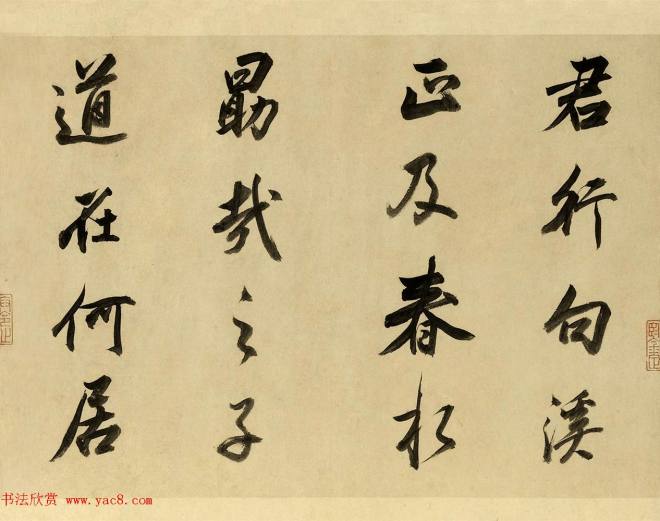 君行句溪
正及春杪
勗哉之子
道在何居
书法欣赏 www.yac8.com